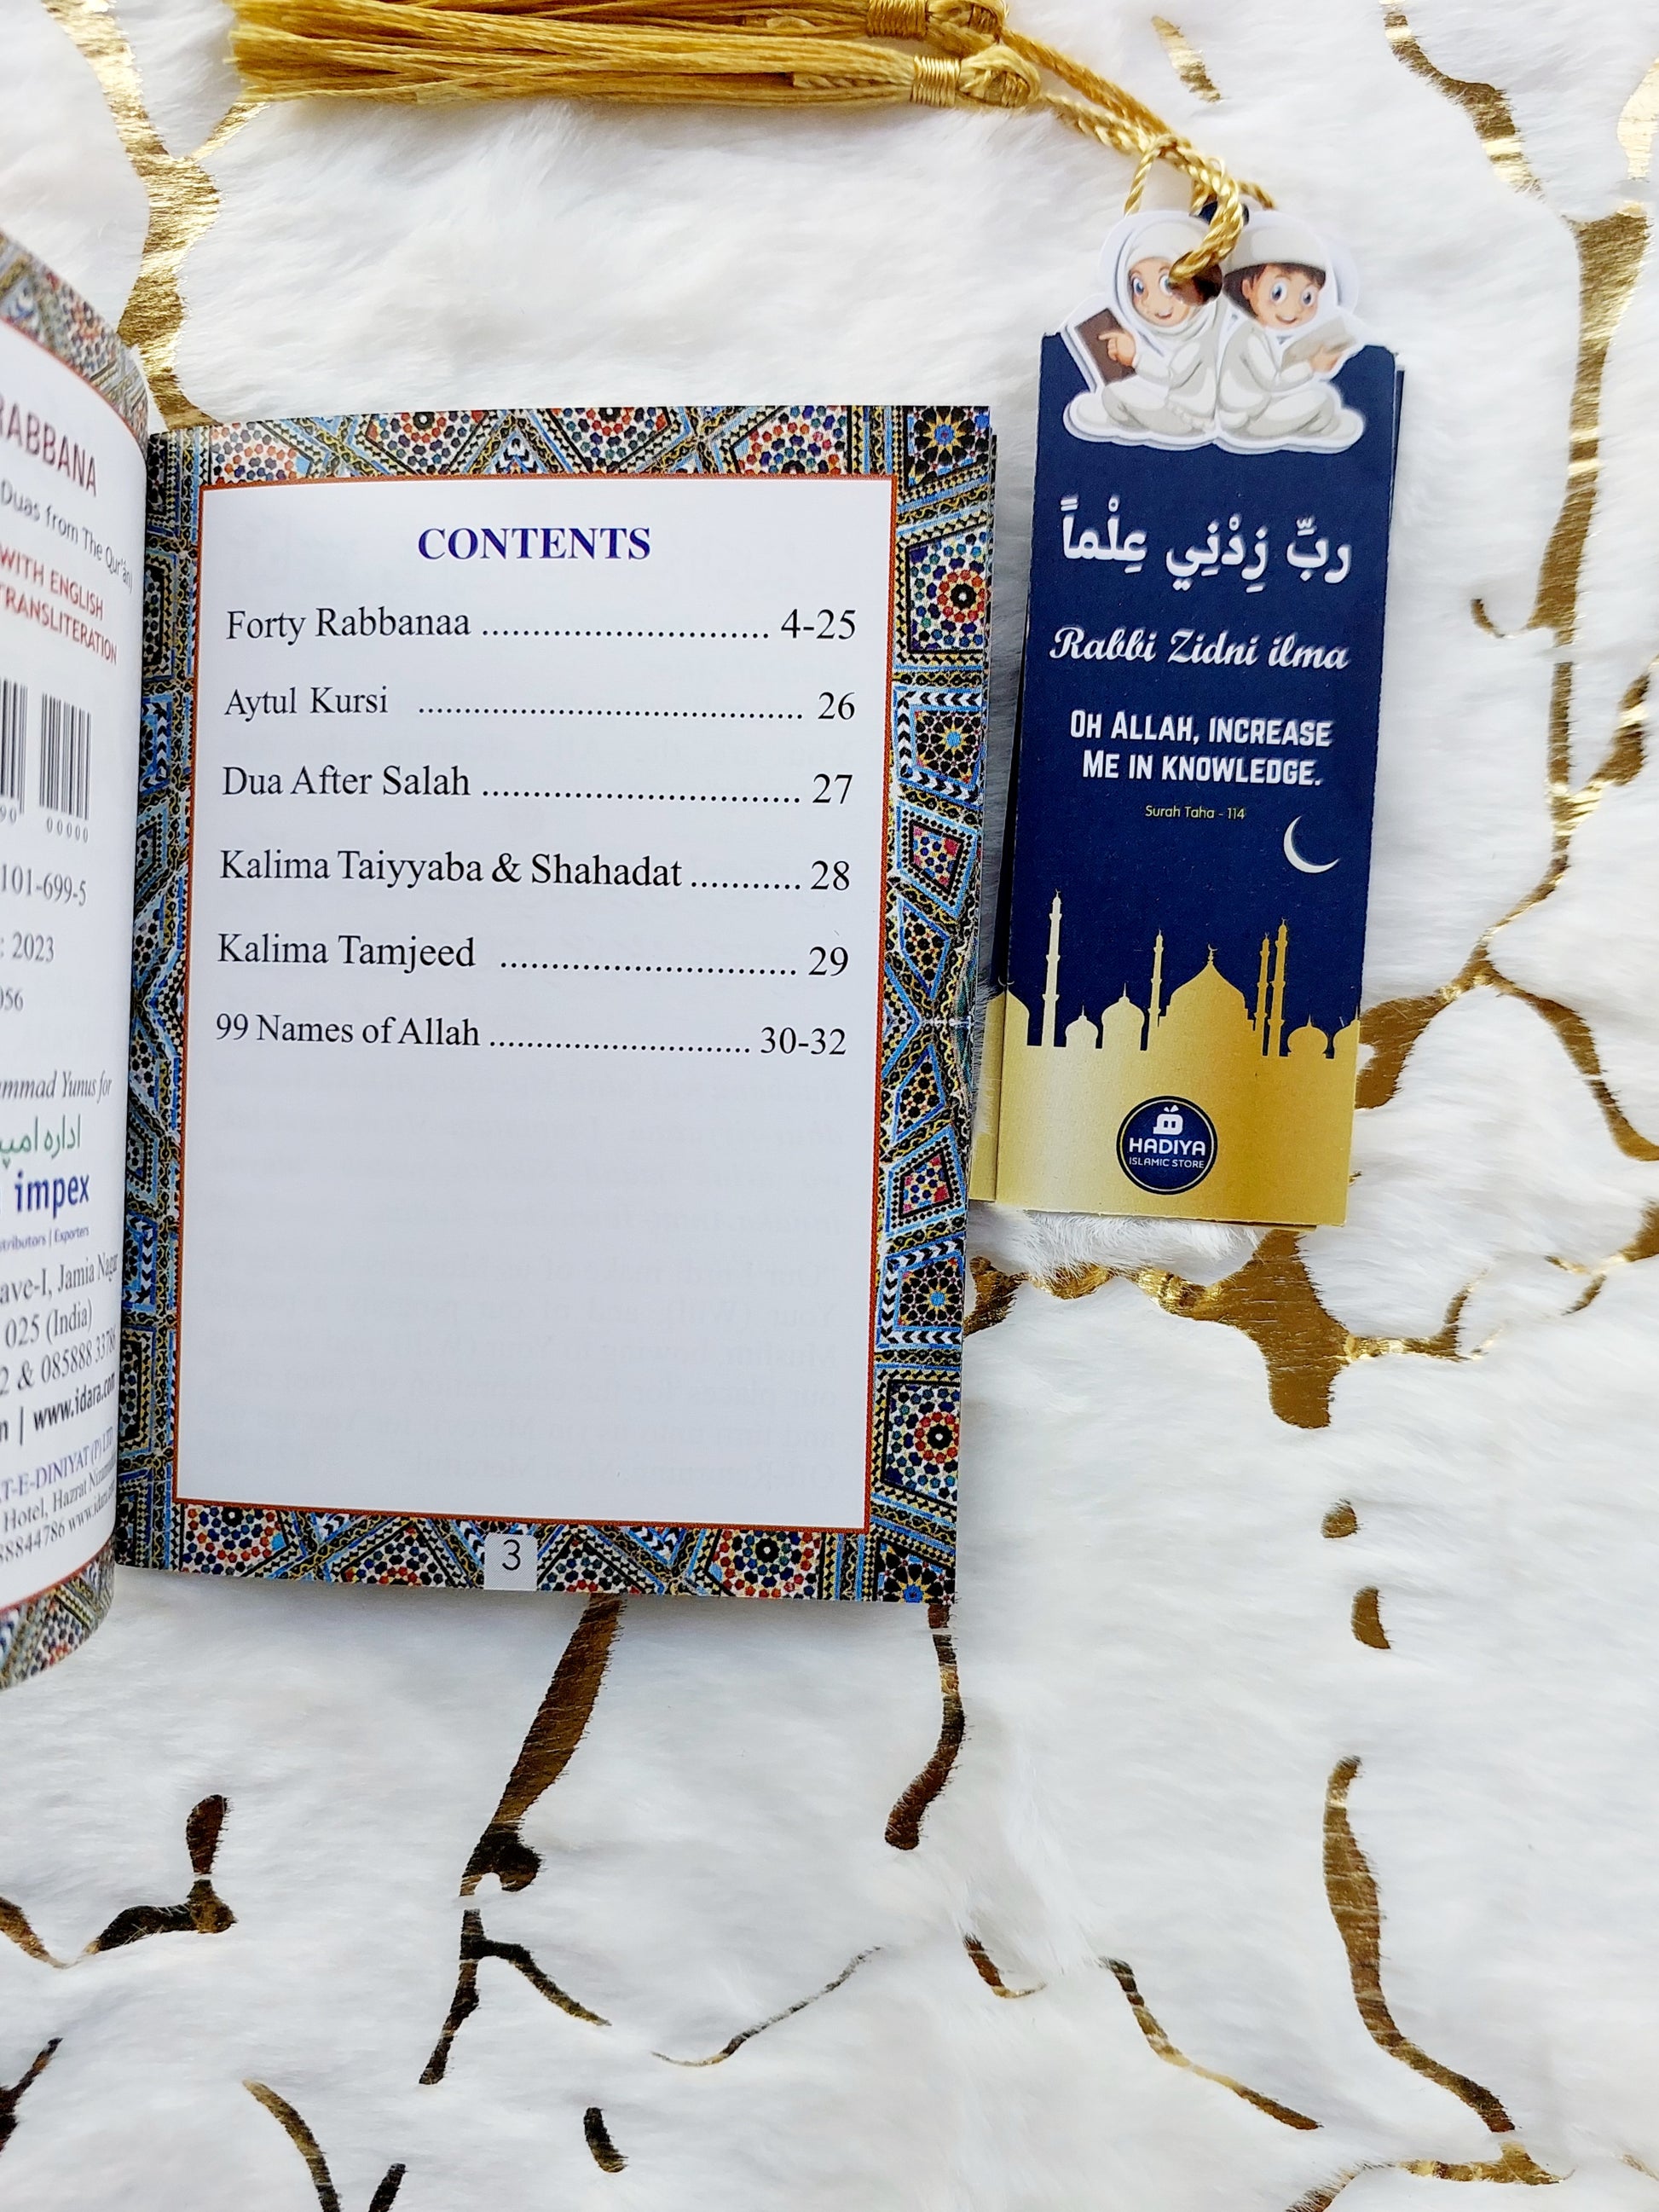 RABBANA
Duas from The Qur'ān)
WITH ENGLISH
TRANSLITERATION
00000
101-699-5
: 2023
056
Yunus for
اداره
impex
Exporters
Jamia Nagar
025 (India)
2 & 085888 33786
www.idara.com
T-E-DINIYAT (P) LTD
Hotel, Hazrat
88844786
CONTENTS
Forty Rabbanaa .............................. 4-25
Aytul Kursi ........................................ 26
Dua After Salah ................................. 27
Kalima Taiyyaba & Shahadat ........... 28
Kalima Tamjeed ............................... 29
99 Names of Allah ........................... 30-32
3
ربِّ زِدْنِي عِلْماً
Rabbi Zidni ilma
OH ALLAH, INCREASE
ME IN KNOWLEDGE.
Surah Taha - 114
HADIYA
ISLAMIC STORE